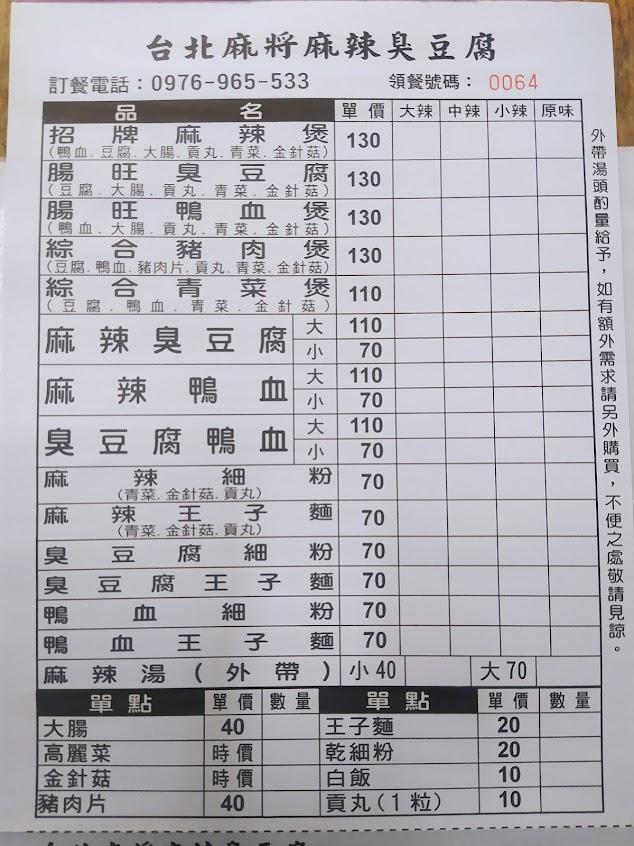 台北麻將麻辣臭豆腐
訂餐電話：0976-965-533 領餐號碼： 0064
品名 單價 大辣 中辣 小辣 原味
招牌麻辣煲 130
(鴨血.豆腐.大腸.貢丸.青菜.金針菇)
腸旺臭豆腐 130
(豆腐.大腸.貢丸.青菜.金針菇)
腸旺鴨血煲 130
(鴨血.大腸.貢丸.青菜.金針菇)
綜合豬肉煲 130
(豆腐.鴨血.豬肉片.貢丸.青菜.金針菇)
綜合青菜煲 110
(豆腐.鴨血.青菜.金針菇)
麻辣臭豆腐 大 110
小 70
麻辣鴨血 大 110
小 70
臭豆腐鴨血 大 110
小 70
麻辣細粉 70
(青菜.金針菇.貢丸)
麻辣王子麵 70
(青菜.金針菇.貢丸)
臭豆腐細粉 70
臭豆腐王子麵 70
鴨血細粉 70
鴨血王子麵 70
麻辣湯(外帶) 小40 大70
單點 單價 數量 單點 單價 數量
大腸 40 王子麵 20
高麗菜 時價 乾細粉 20
金針菇 時價 白飯 10
豬肉片 40 貢丸(1粒) 10
外帶湯頭酌量給予，如有額外需求請另外購買，不便之處敬請見諒。